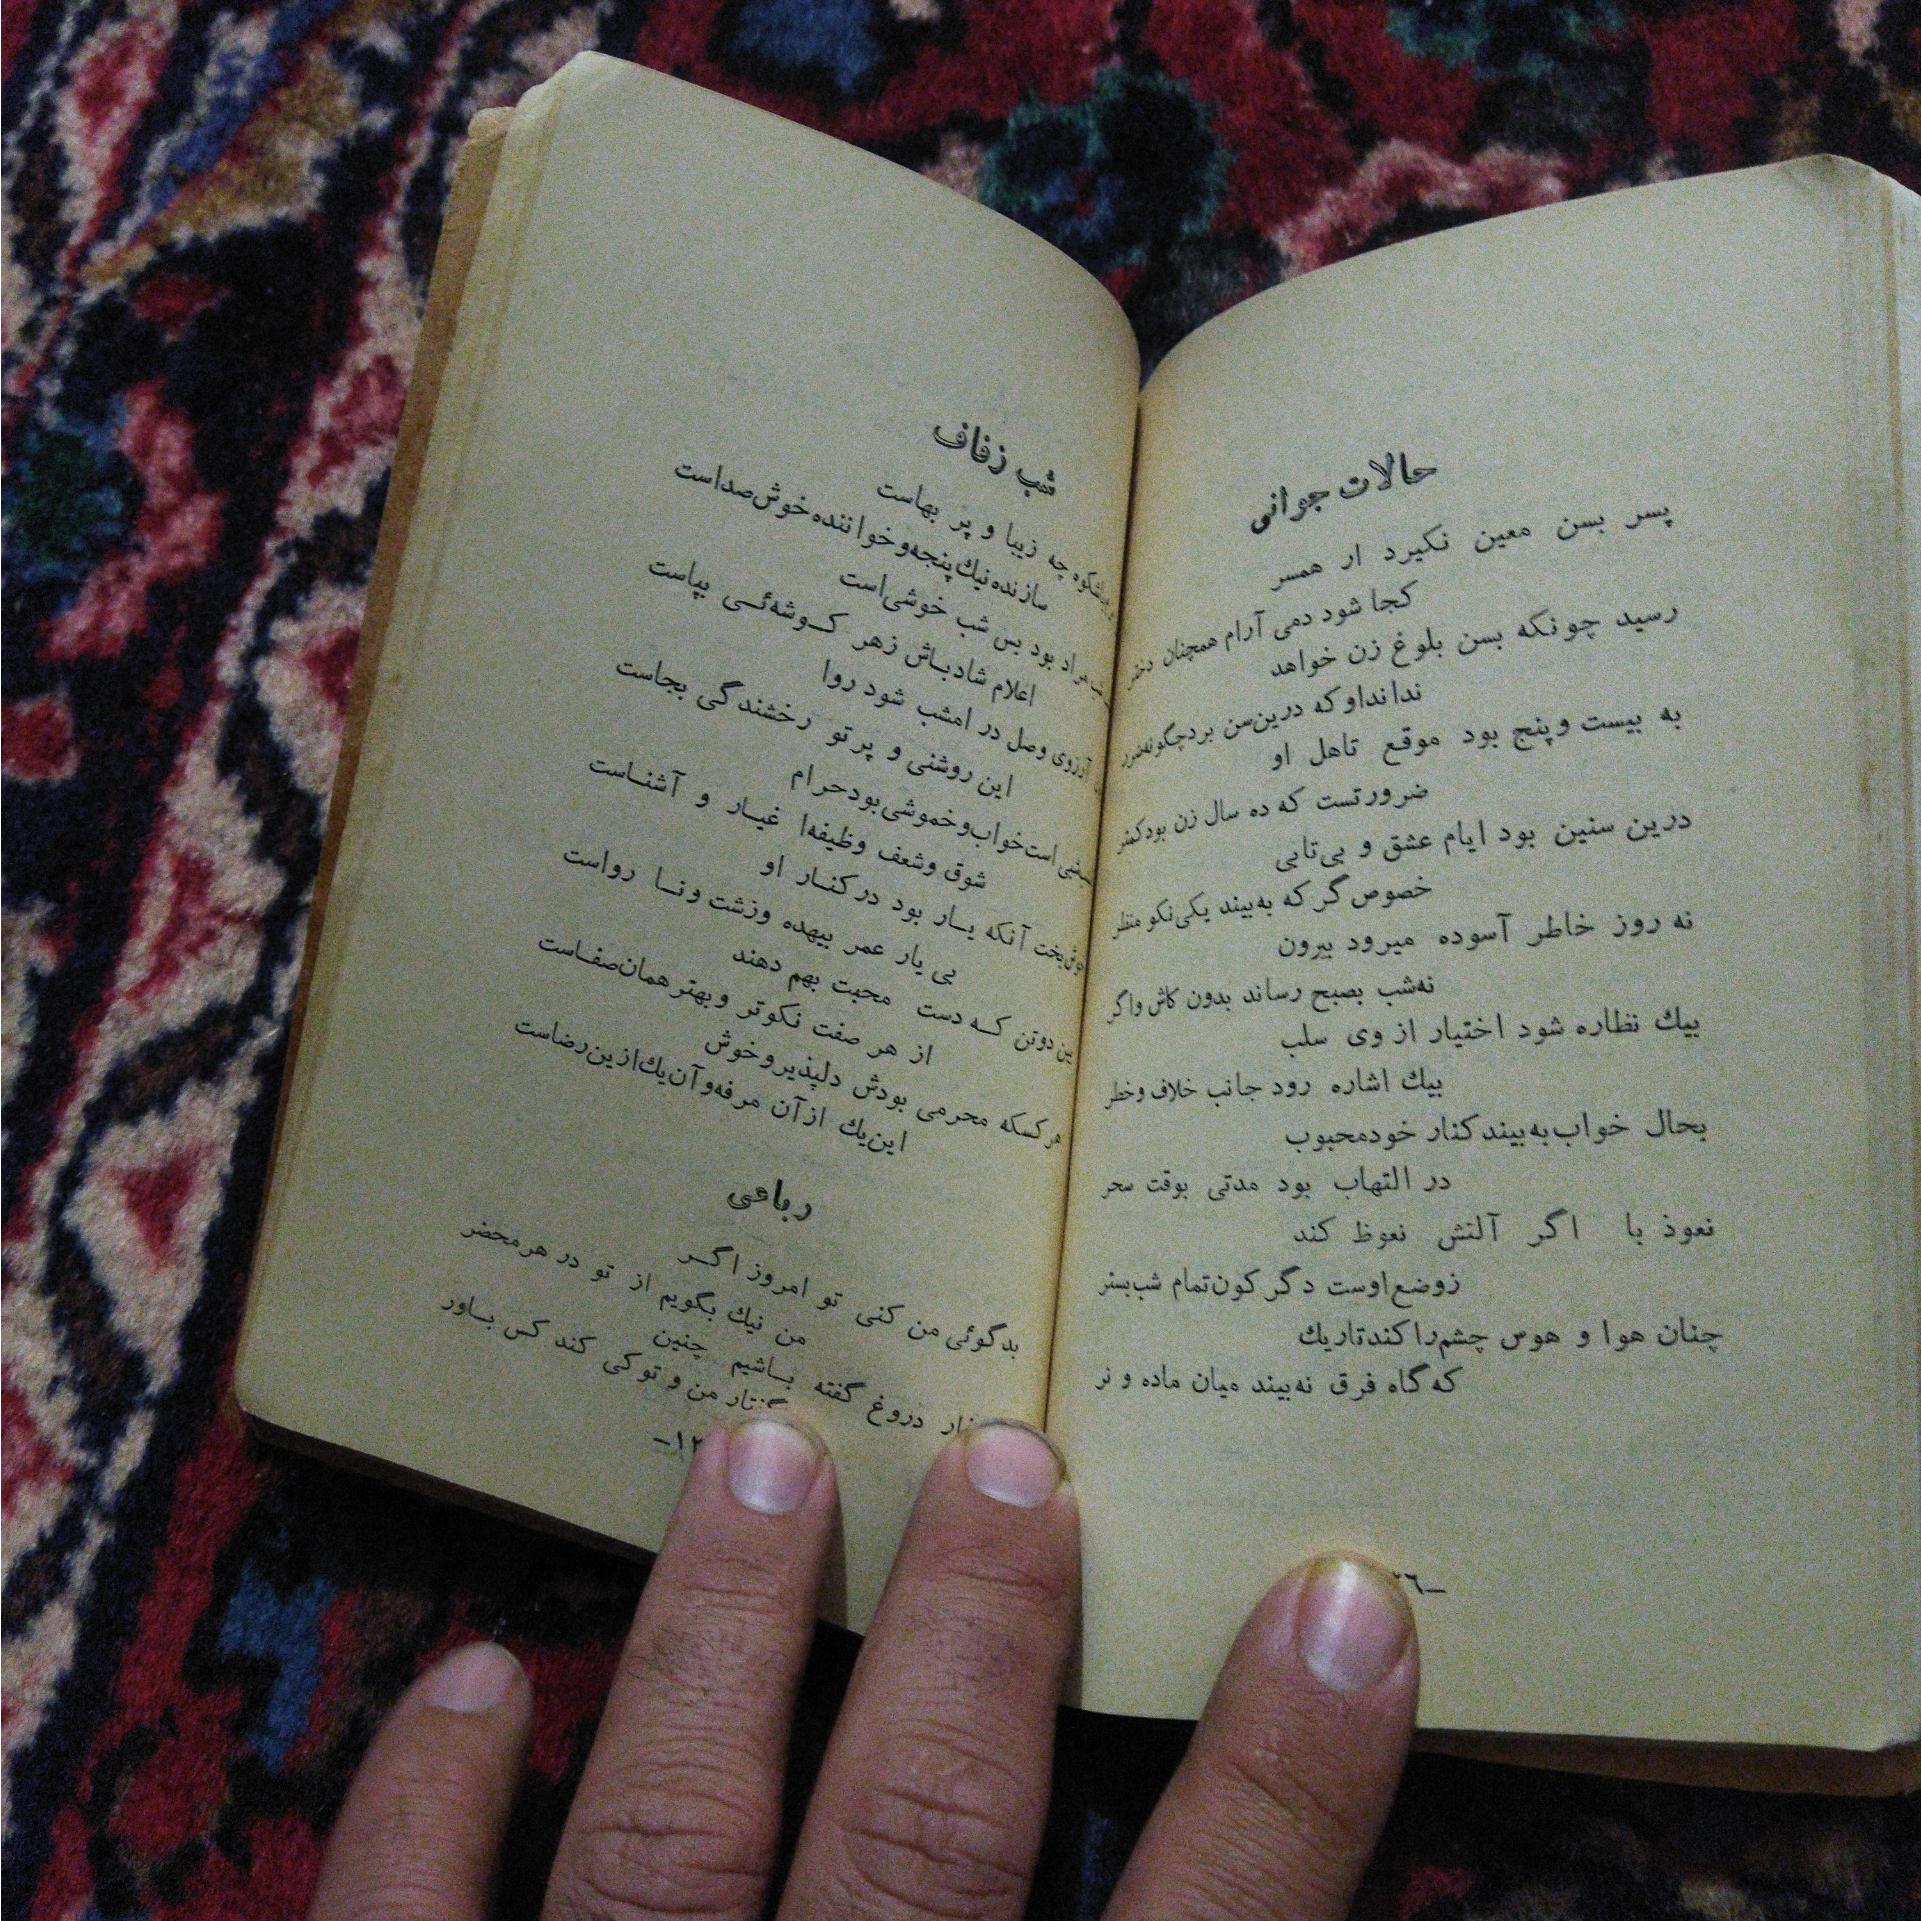 حالات جوانی
پسر بسن معین نگیرد ار همسر
کجا شود دمی آرام همچنان دختر
رسید چونکه بسن بلوغ زن خواهد
نداند او که درین سن برد چگونه ضرر
به بیست و پنج بود موقع تاهل او
ضرورتست که ده سال زن بود کمتر
درین سنین بود ایام عشق و بی‌تابی
خصوص گر که به‌بیند یکی نکو منظر
نه روز خاطر آسوده میرود بیرون
نه‌شب بصبح رساند بدون کاش و اگر
بیك نظاره شود اختیار از وی سلب
بیك اشاره رود جانب خلاف و خطر
بحال خواب به‌بیند کنار خود محبوب
در التهاب بود مدتی بوقت سحر
نعوذ با اگر آلتش نعوظ کند
ز وضع اوست دگرگون تمام شب بستر
چنان هوا و هوس چشم را کند تاریك
که گاه فرق نه‌بیند میان ماده و نر
٢٦-
شب زفاف
چه زیبا و پر بهاست
سازنده نیك پنجه و خواننده خوش صداست
مراد بود بس شب خوشی است
اعلام شادباش زهر گوشه‌ئی بپاست
آرزوی وصل در امشب شود روا
این روشنی و پرتو رخشندگی بجاست
است خواب و خموشی بود حرام
شوق و شعف وظیفه‌ا غیار و آشناست
خوش‌بخت آنکه یار بود در کنار او
بی یار عمر بیهده و زشت و نا رواست
بین دوتن که دست محبت بهم دهند
از هر صفت نکوتر و بهتر همان صفاست
هرکسکه محرمی بودش دلپذیر و خوش
این‌یك از آن مرفه و آن‌یك ازین رضاست
رباعی
بدگوئی من کنی تو امروز اگر
من نیك بگویم از تو در هر محضر
دروغ گفته باشیم چنین
گفتار من و تو کی کند کس باور